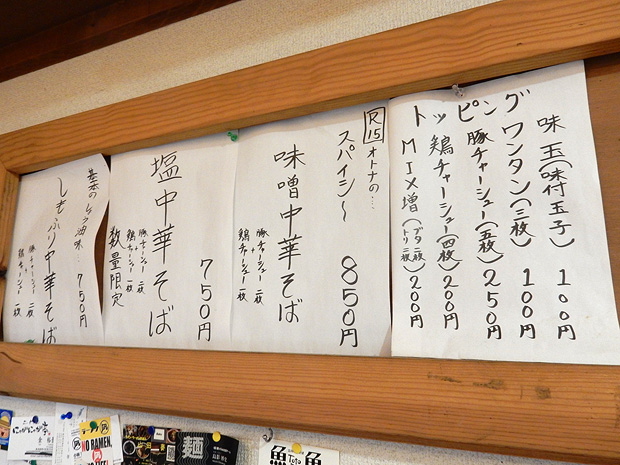 トッピング
味玉(味付玉子) 100円
ワンタン(三枚) 100円
豚チャーシュー(五枚) 250円
鶏チャーシュー(四枚) 200円
MIX増(ブタ二枚 トリ二枚) 200円
R15 オトナの…
スパイシ〜
味噌中華そば 850円
豚チャーシュー 二枚
鶏チャーシュー 一枚
塩中華そば 750円
豚チャーシュー 二枚
鶏チャーシュー 一枚
数量限定
基本のしょう油味 750円
しもふり中華そば
豚チャーシュー 二枚
鶏チャーシュー 一枚
NO RAMEN,
麺